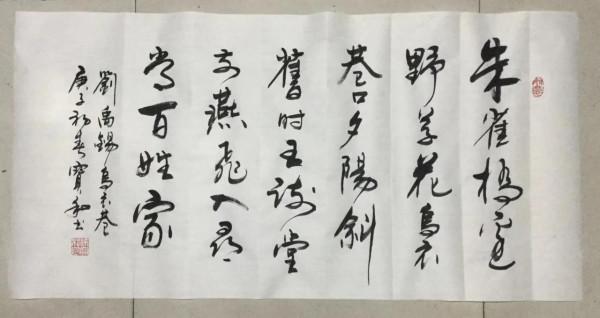 朱雀橋邊
野草花烏衣
巷口夕陽斜
舊時王謝堂
前燕飛入尋
常百姓家
劉禹錫烏衣巷
庚子初春寶和書